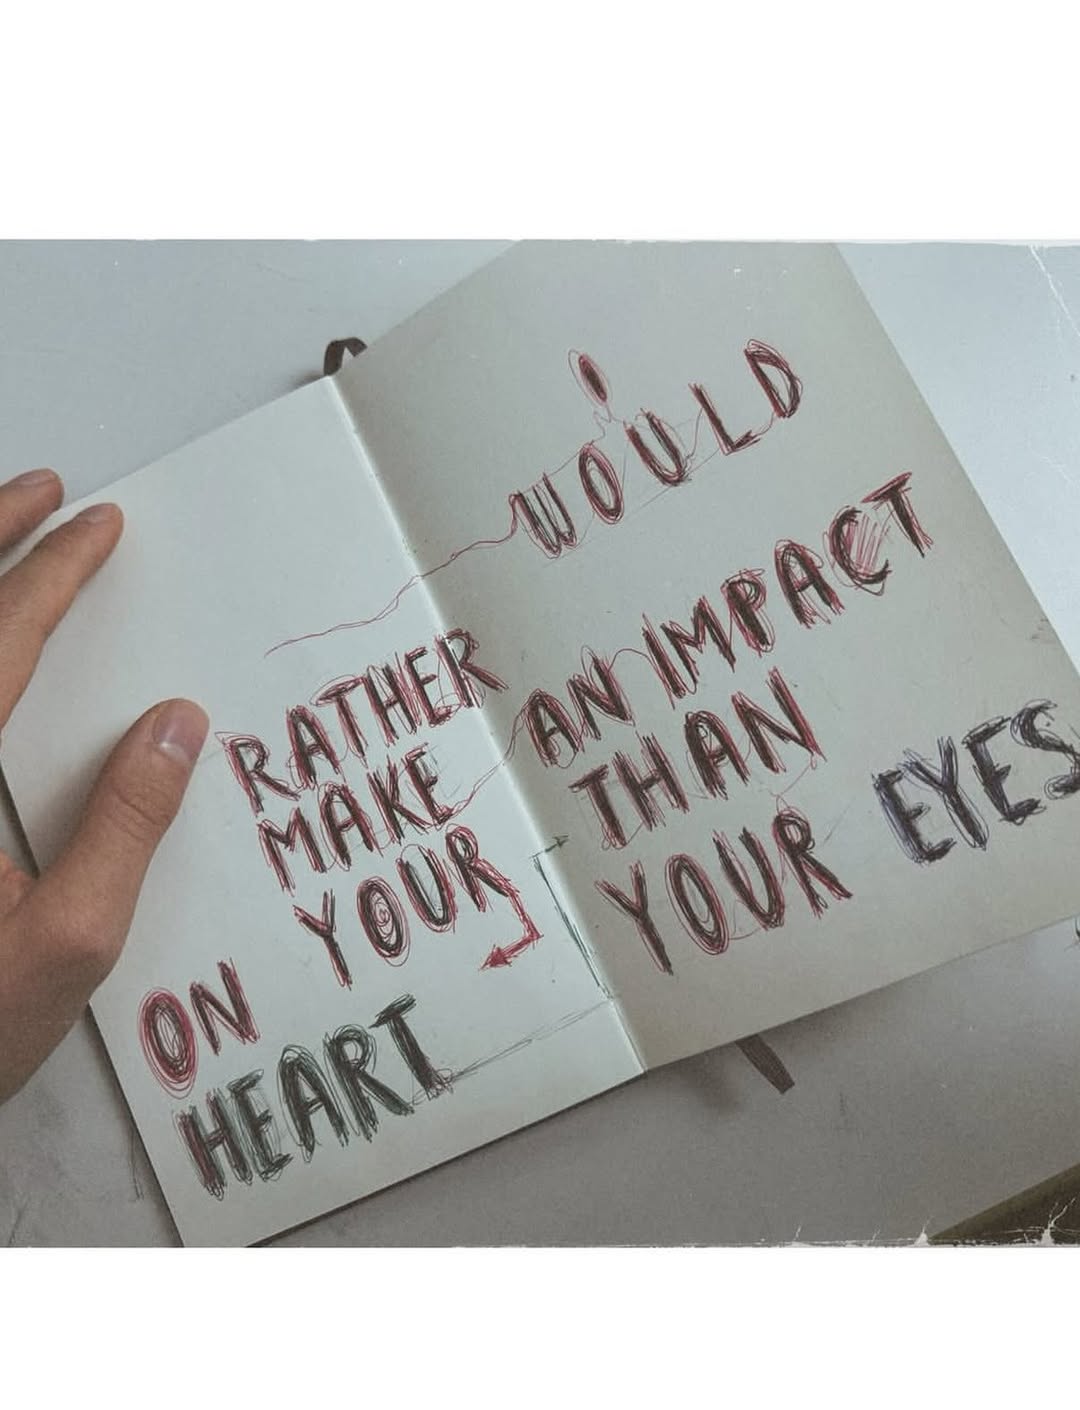 I
WOULD
RATHER
MAKE AN IMPACT
ON YOUR
HEART
THAN
YOUR EYES